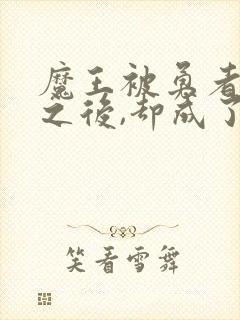 魔王被勇者
之後,却成了
笑看雪舞